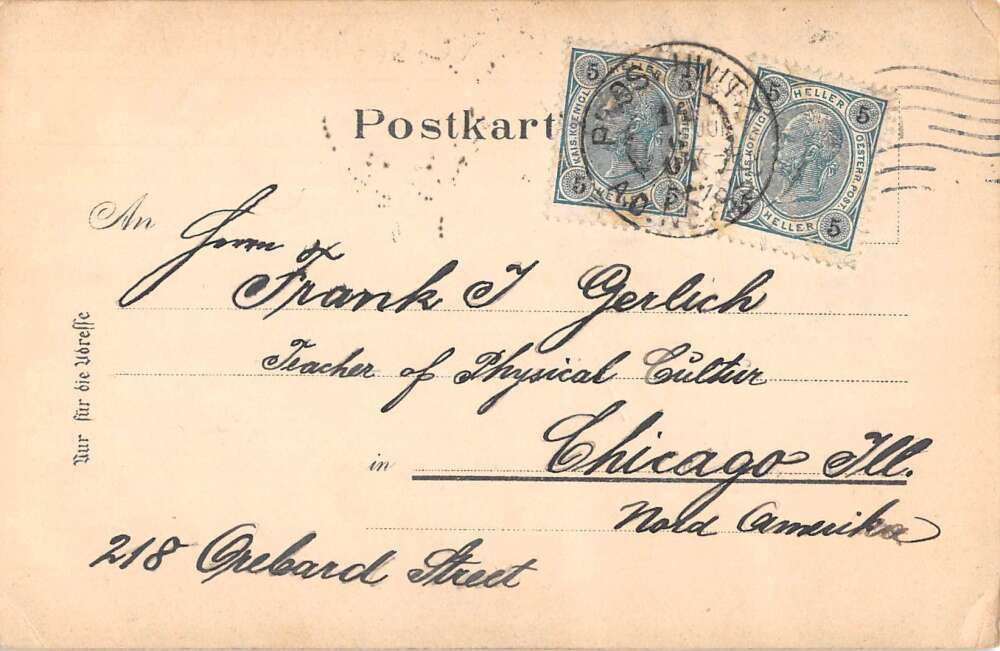 Postkart
An Herrn
Frank J Gerlich
Teacher of Physical Cultur
in Chicago Ill.
Nord Amerika
218 Orebard Street
Nur für die Adresse
5 HELLER 5
KAIS. KOENIGL.
5 HELLER 5
KAIS. KOENIGL. OESTERR. POST
5 HELLER 5